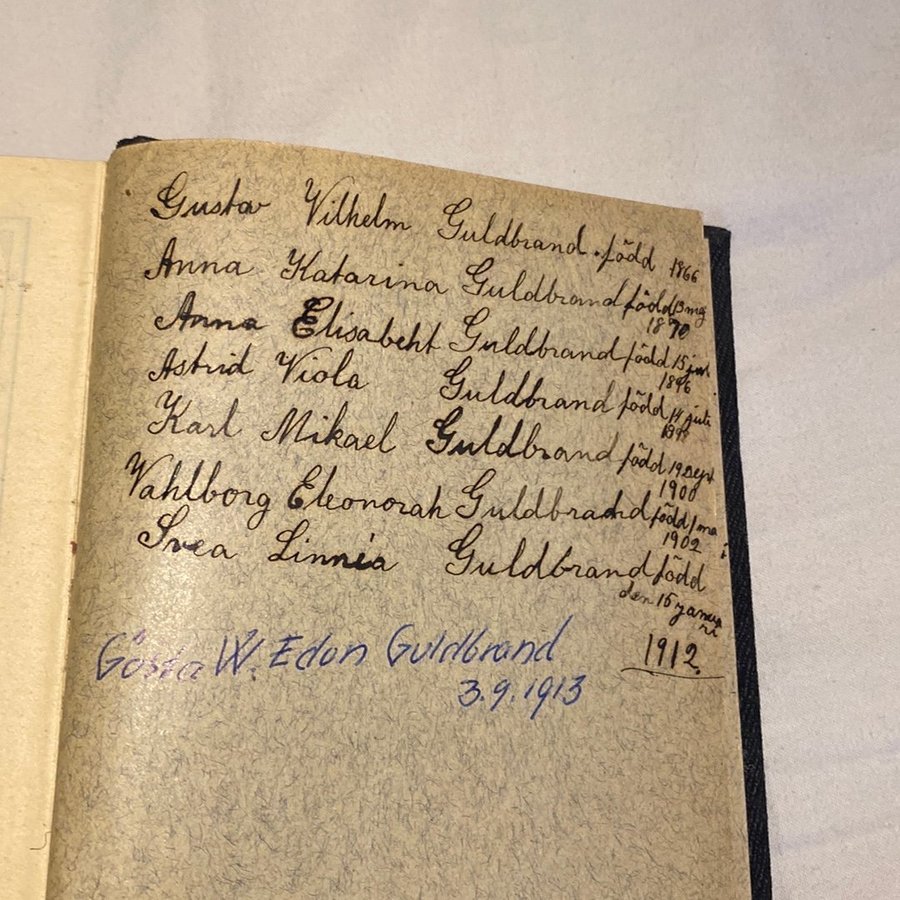 Gustav Vilhelm Guldbrand född 1866
Anna Katarina Guldbrand född
1870
Anna Elisabeht Guldbrand född 15
1896
Astrid Viola Guldbrand född 14 juli
Karl Mikael Guldbrand född 19 Sept
1900
Vahlborg Eleonorah Guldbrand född 1 ma
i
1902
Svea Linnia Guldbrand född
den 15 janua
ri
1912
Gösta W. Edon Guldbrand
3.9.1913